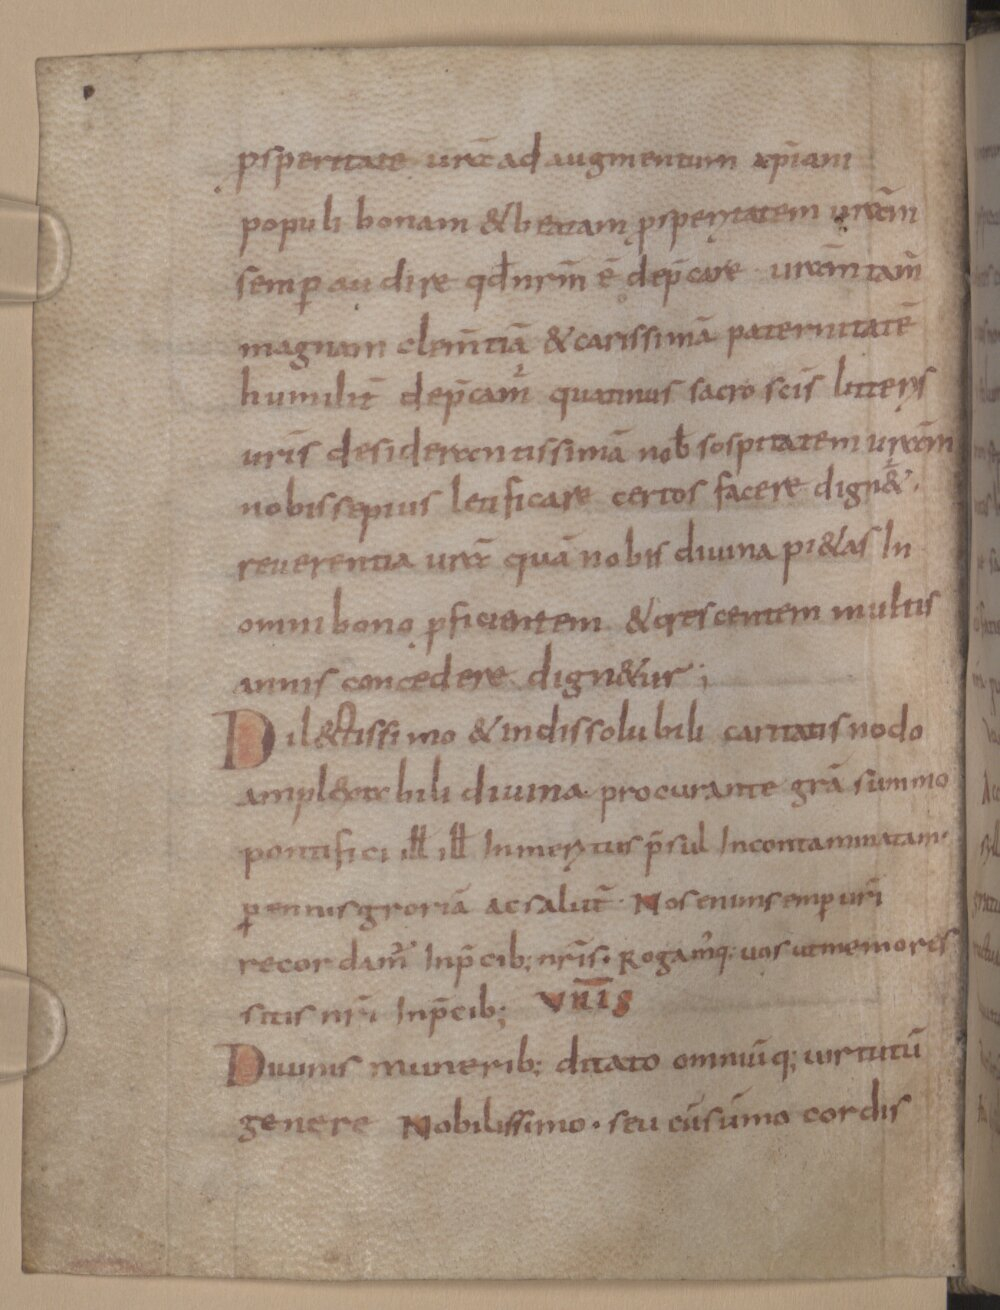 ꝓsperitate urac̄ ad augmentum xp̄iani
populi bonam & beatam ꝓsperitatem uracm̄
semꝑ audire qđ nrm̄ ē dep̄care uracm̄ tam̄
magnam clem̄tiā & carissimā paternitatē
humilit̄ dep̄camr̄ quatinus sacro scīs litteris
uris̄ desiderantissimā nob̄ sospitatem uracm̄
nobis sepius letificare certos facere dign&r̄.
reuerentia urac̄ quā nobis diuina pi&as In
omni bono ꝓficientem & crescentem multis
annis concedere dign&ur;
Dil&issimo & indissolubili caritatis nodo
ampl&abili diuina procurante grā summo
pontifici ill ill Inmeritus p̄sul Incontaminatam.
ꝑennis groriā ac salut̄. Nos enim semꝑ uri̅
recordam̄ In p̄cib; nris̄. Rogam̄q; uos ut memores
sitis nri̅ In p̄cib; vnīs
Diuinis munerib; ditato omniūq; uirtutū
genere Nobilissimo. seu cū sūmo cordis